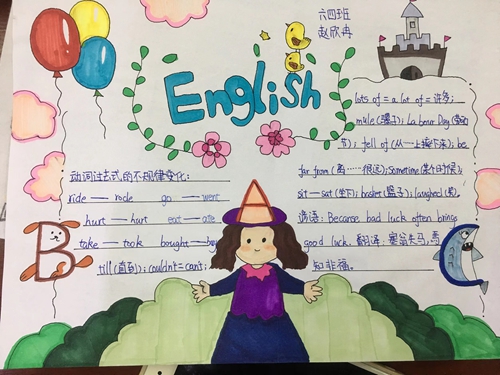 六四班
赵欣冉
English
动词过去式的不规律变化:
ride — rode go — went
hurt — hurt eat — ate
take — took bought —
till(直到); couldn't = can't;
lots of = a lot of = 许多;
mule(骡子); Labour Day(劳动
节); fell of(从…上摔下来); be
far from(离……很远); Sometime(某个时候);
sit — sat(坐下); basket(篮子); laughed(笑)
谚语: Because bad luck often brings
good luck. 翻译: 塞翁失马,焉
知非福。
B
C